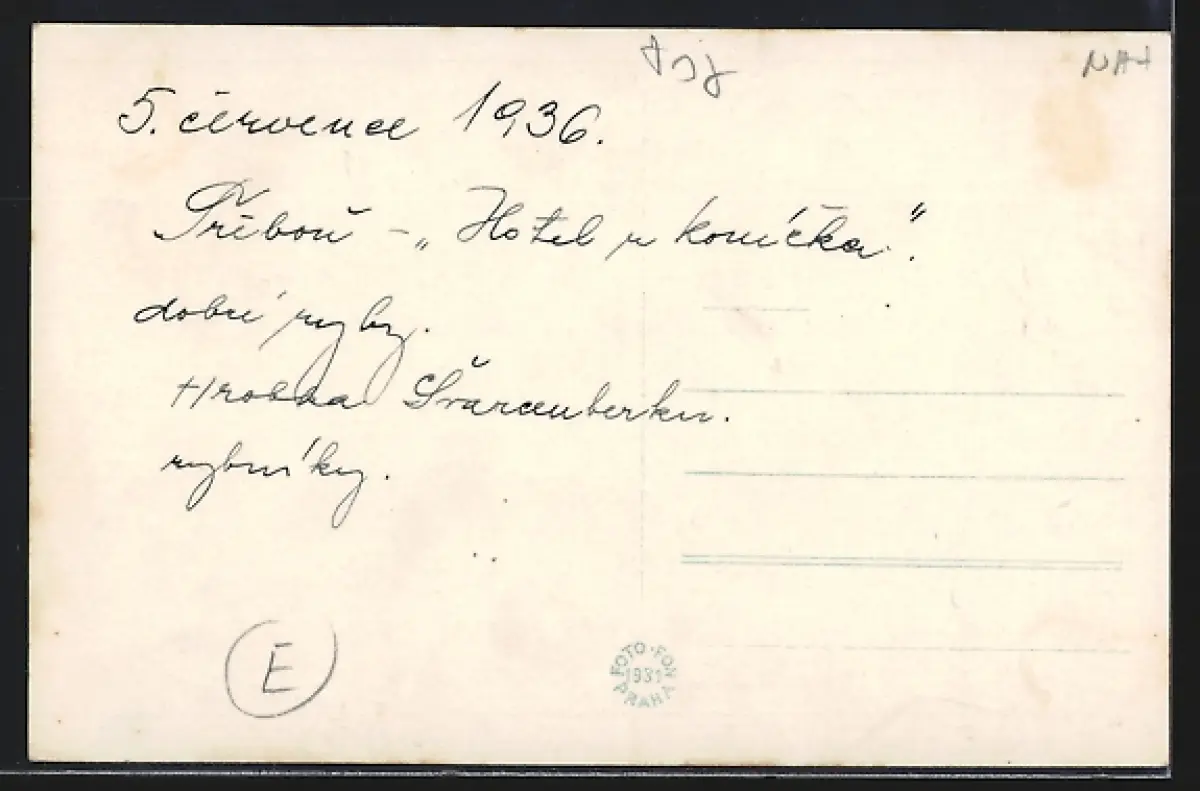 5. července 1936.
Třeboň - „Hotel u koníčka“.
dobré ryby.
Hrobka Švarcenberků.
rybníky.
E
FOTO·FON
1931
PRAHA